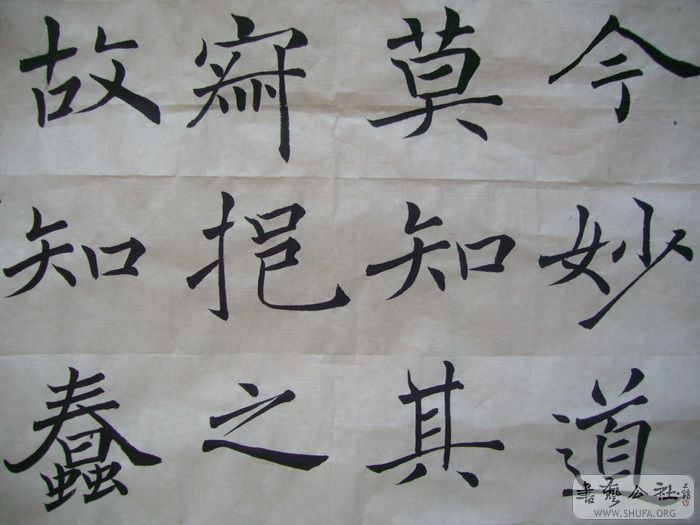 今妙道
莫知其
寂挹之
故知蠢
書藝公社
WWW.SHUFA.ORG